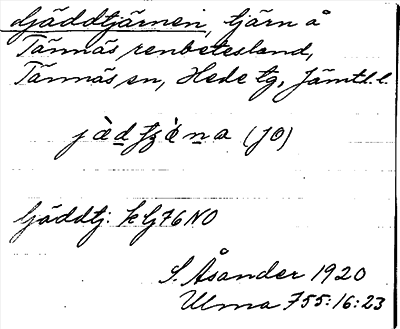 Gäddtjärnen, tjärn å
Tännäs renbetesland,
Tännäs sn, Hede tg, Jämtl. l.
(JO)
Gäddtj: k Gj76NO
S. Åsander 1920
Ulma 755:16:23